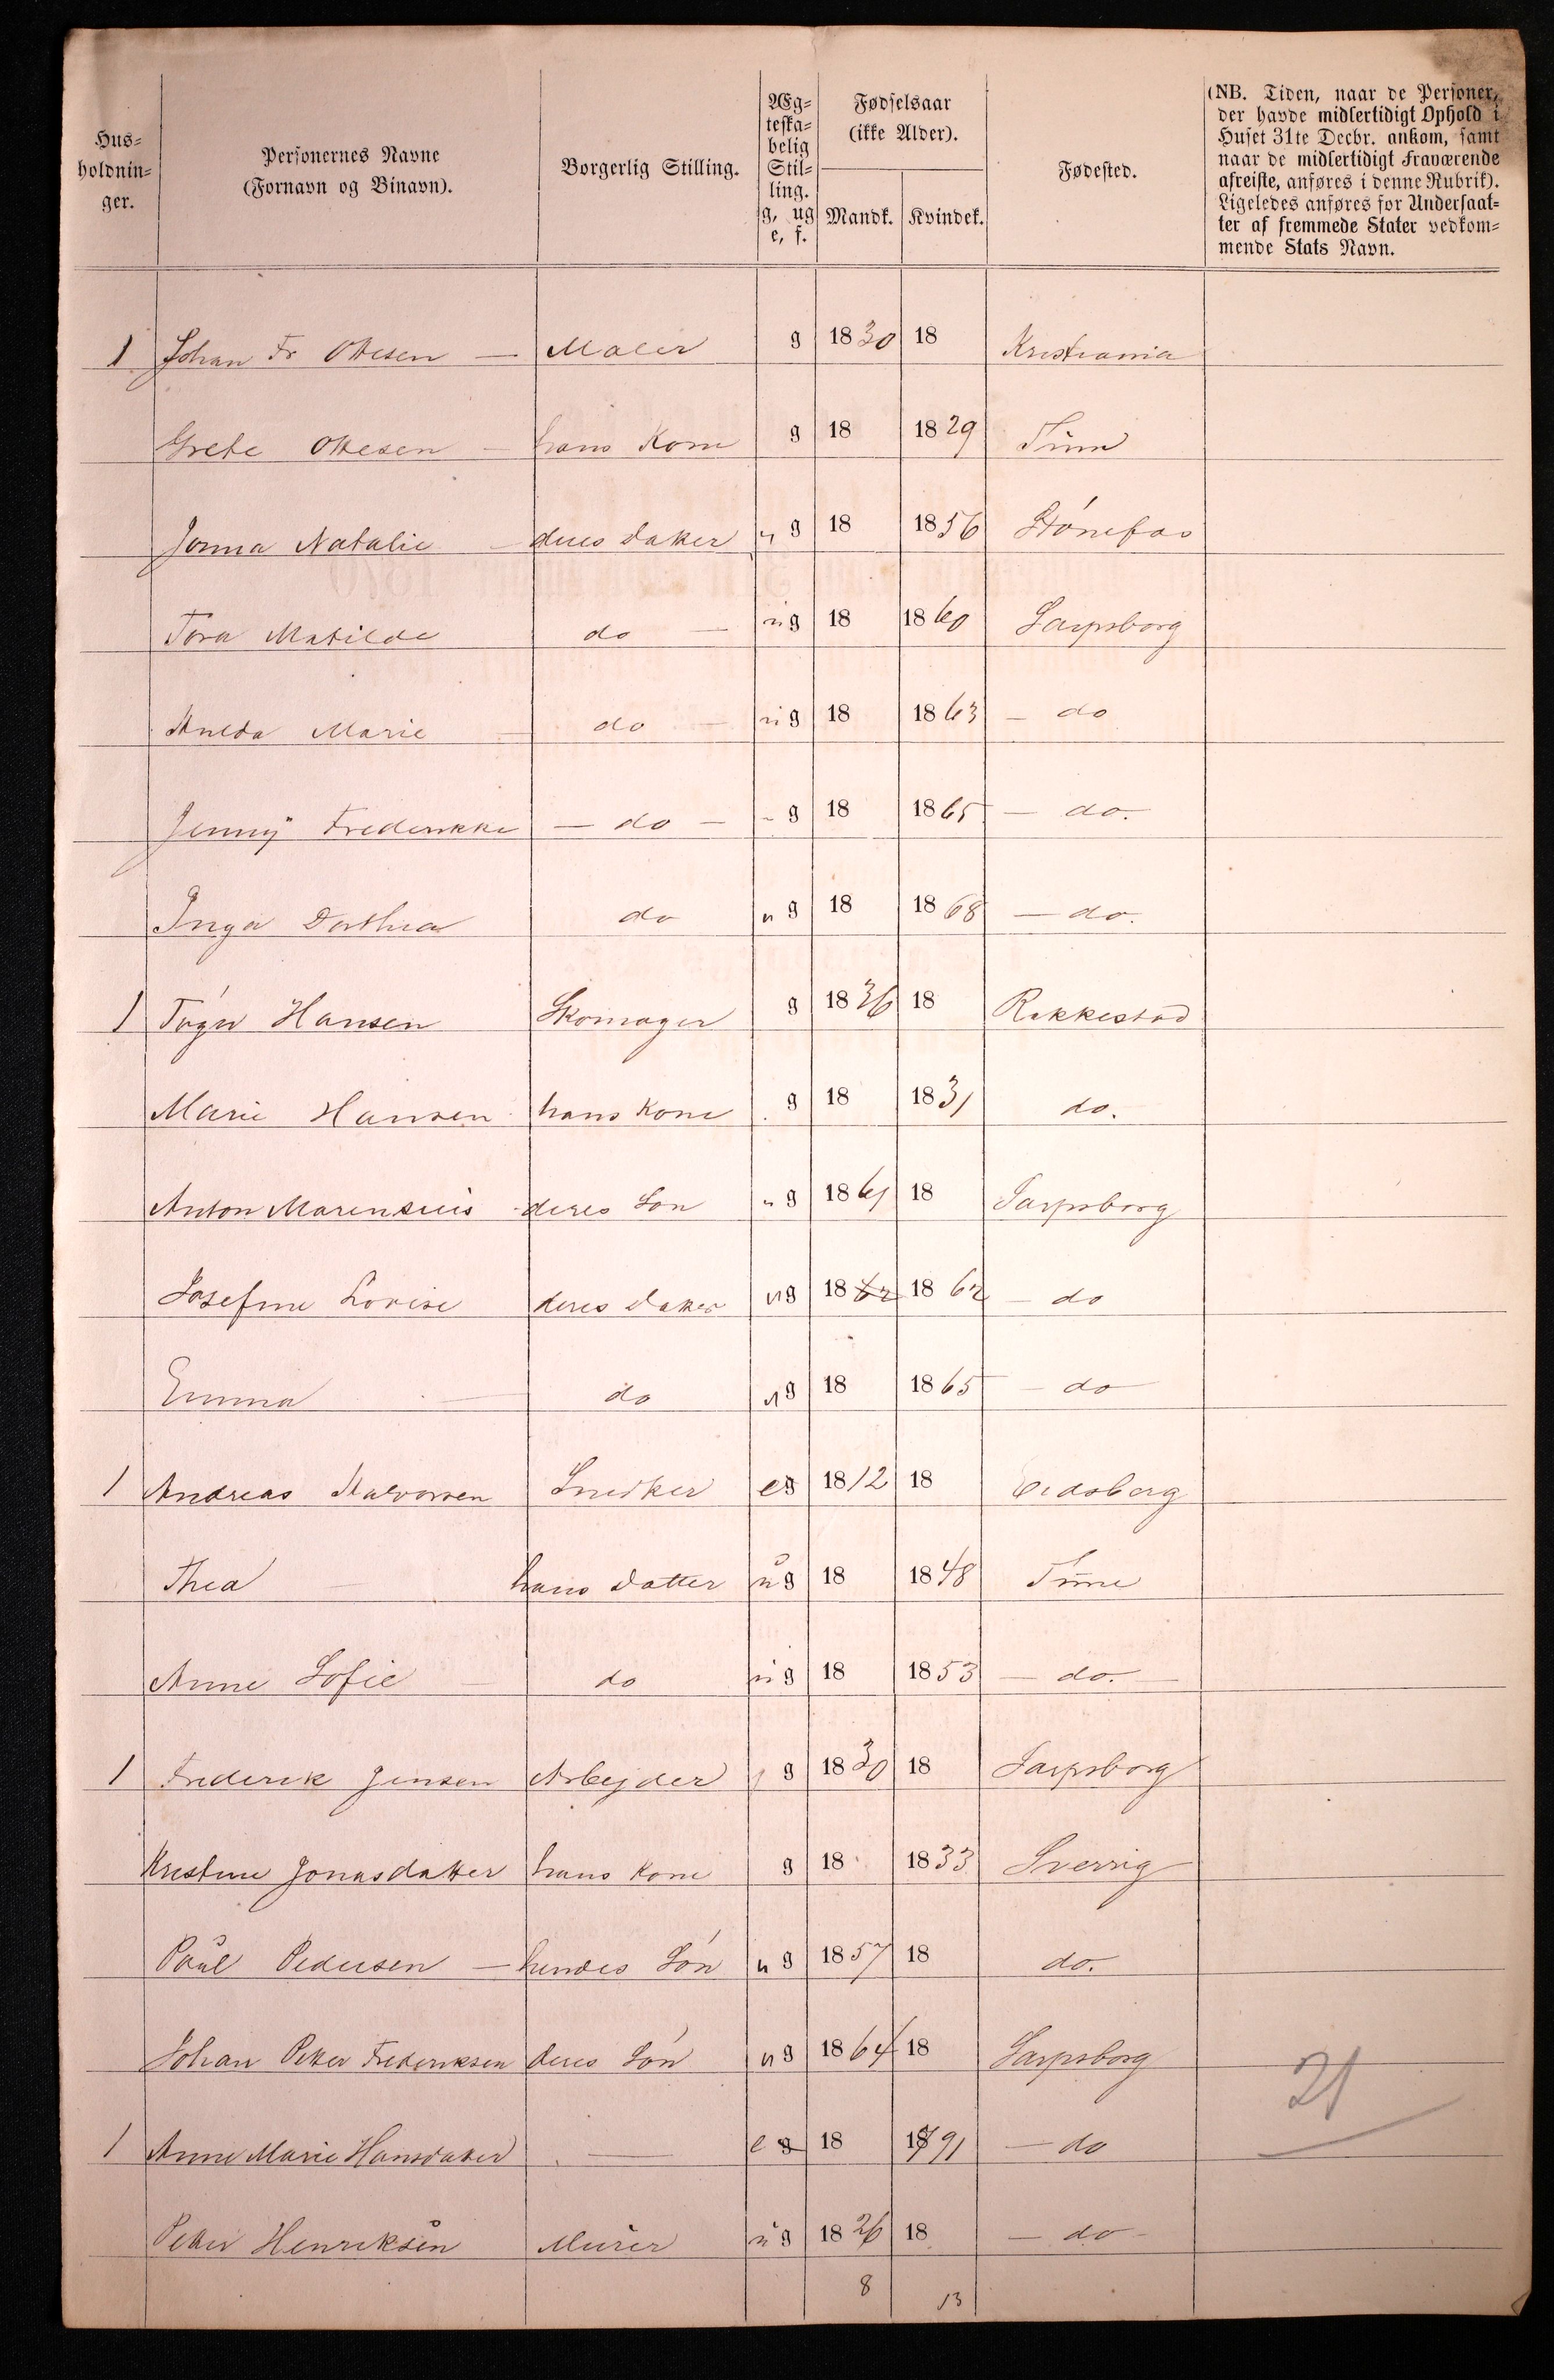 Hus=
holdnin=
ger.
Personernes Navne
(Fornavn og Binavn).
Borgerlig Stilling.
Æg=
teska=
belig
Stil=
ling.
g, ug
e, f.
Fødselsaar
(ikke Alder).
Mandk. Kvindek.
Fødested.
(NB. Tiden, naar de Personer,
der havde midlertidigt Ophold i
Huset 31te Decbr. ankom, samt
naar de midlertidigt Fraværende
afreiste, anføres i denne Rubrik).
Ligeledes anføres for Undersaat=
ter af fremmede Stater vedkom=
mende Stats Navn.
1 Johan Fr Ottesen — Maler g 1830 18 Kristiania
Grete Ottesen — hans Kone g 18 1829 Tune
Jonna Natalie deres datter ug 18 1856 Hönefos
Tora Matilde do — ug 18 1860 Sarpsborg
Hulda Marie do — ug 18 1863 — do
Jenny Frederikke — do — ug 18 1865 — do.
Inga Dorthea do ug 18 1868 — do.
1 Hansen Skomager g 1836 18 Rakkestad
Marie Hansen hans Kone g 18 1831 do.
Anton Marensius deres Søn ug 1861 18 Sarpsborg
Josefine Lovise deres datter ug 1862 1862 — do
Emma — do ug 18 1865 — do
1 Andreas Halvorsen Snedker eg 1812 18 Eidsberg
Thea — hans datter ug 18 1848 Tune
Anne Sofie — do ug 18 1853 — do. —
1 Frederik Jensen Arbejder g 1830 18 Sarpsborg
Kristine Jonasdatter hans Kone g 18 1833 Sverrig
Paul Pedersen — hendes Sön ug 1857 18 do.
Johan Petter Frederiksen deres Sön ug 1864 18 Sarpsborg
1 Anne Marie Hansdatter — e g 18 1791 — do
Petter Henriksen Murer ug 1826 18 — do —
8 13
21